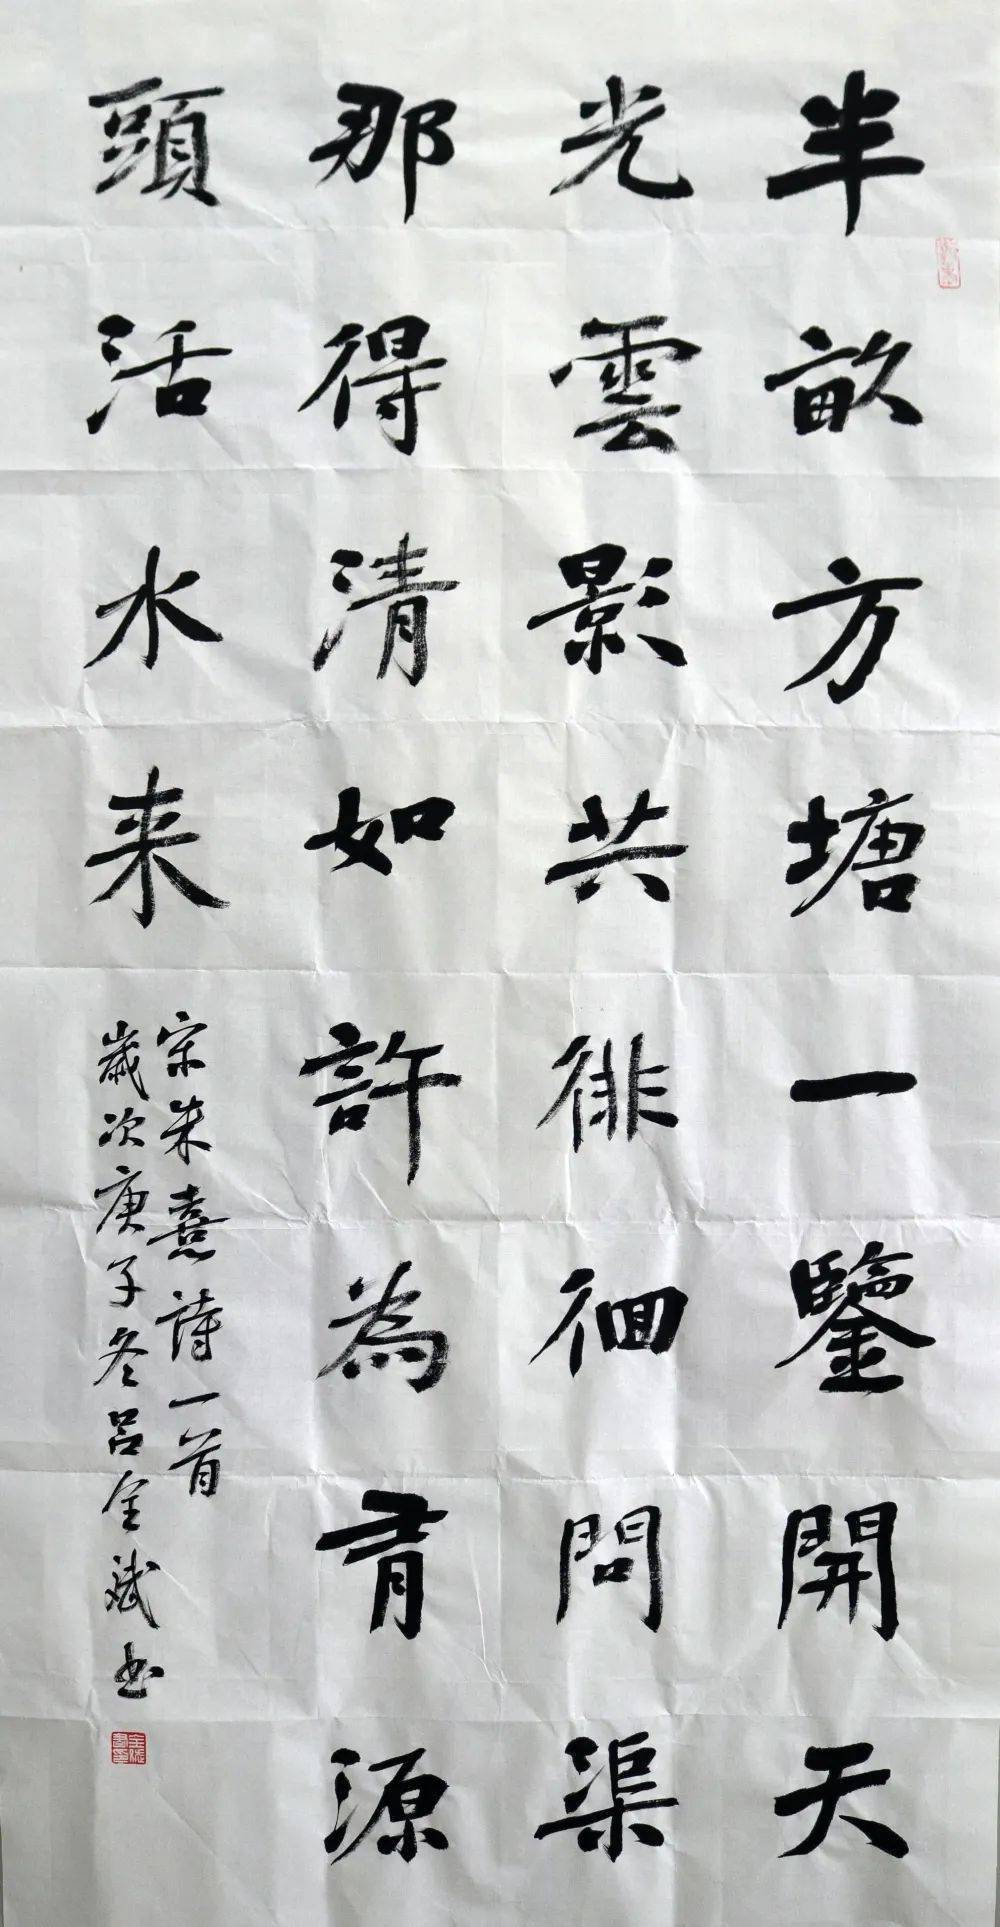 半畝方塘一鑒開天
光雲影共徘徊問渠
那得清如許為有源
頭活水来
宋朱熹詩一首
歲次庚子冬吕全斌书